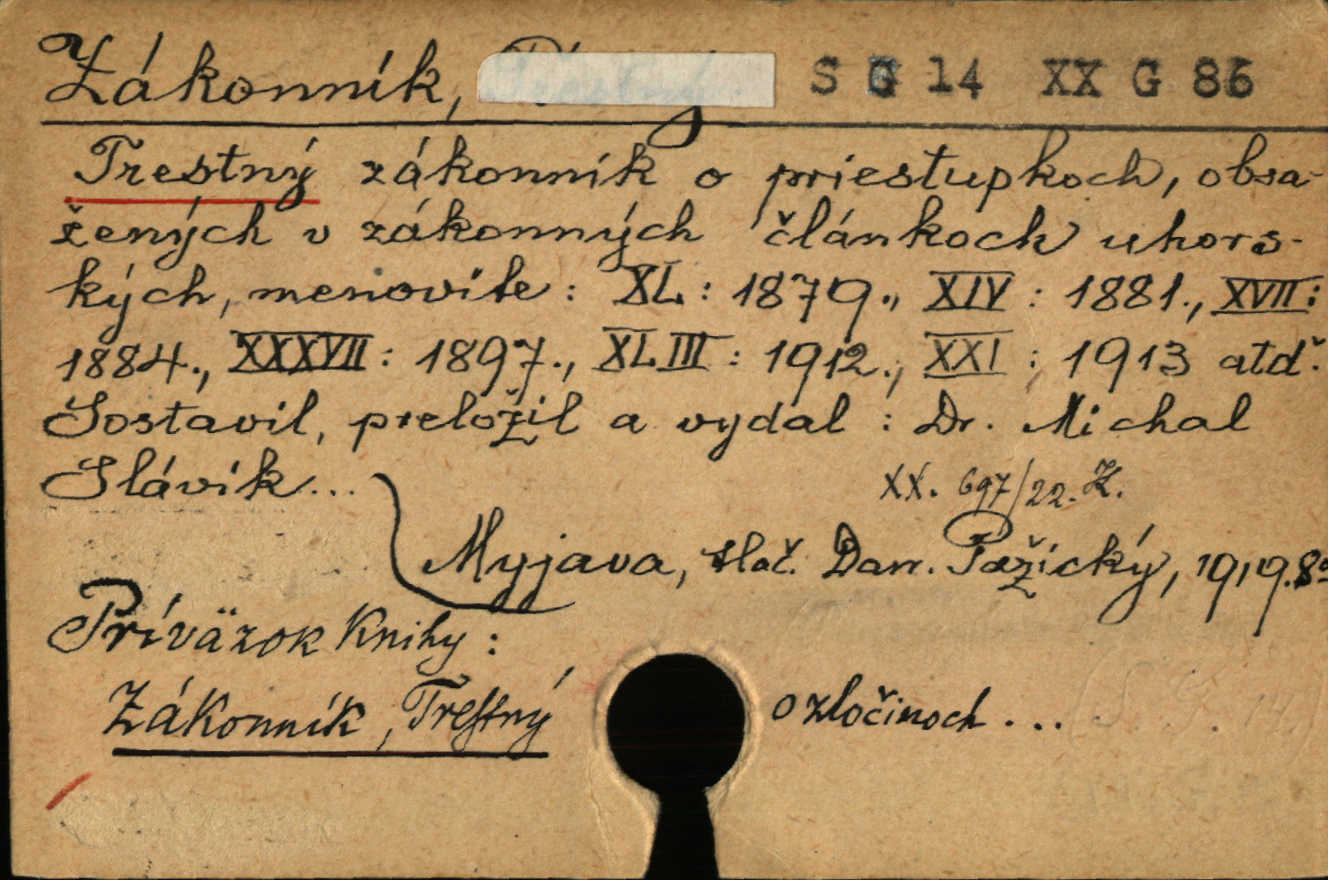 Zákonník, S G 14 XX G 86
Trestný zákonník o priestupkoch, obsa-
žených v zákonných článkoch uhors-
kých, menovite: XL: 1879., XIV: 1881., XVII:
1884., XXXVII: 1897., XLIII: 1912., XXI: 1913 atď.
Sostavil, preložil a vydal: Dr. Michal
Slávik...
XX. 697/22. K.
Myjava, tlač. Dan. Pažický, 1919. 8°
Príväzok knihy:
Zákonník, Trestný o zločinoch...